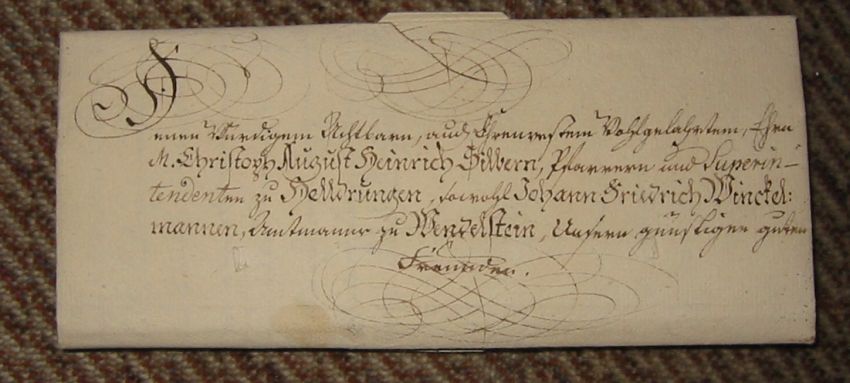 Denen Würdigem Achtbarn, auch Ehrenvestem Wohlgelahrtem, Ehrn
M. Christoph August Heinrich Hillwern, Pfarrern und Superin-
tendenten zu Heldrungen, sowohl Johann Friedrich Winckel:
mannen, Amtmanne zu Wendelstein, Unsern günstigen guten
Freunden.